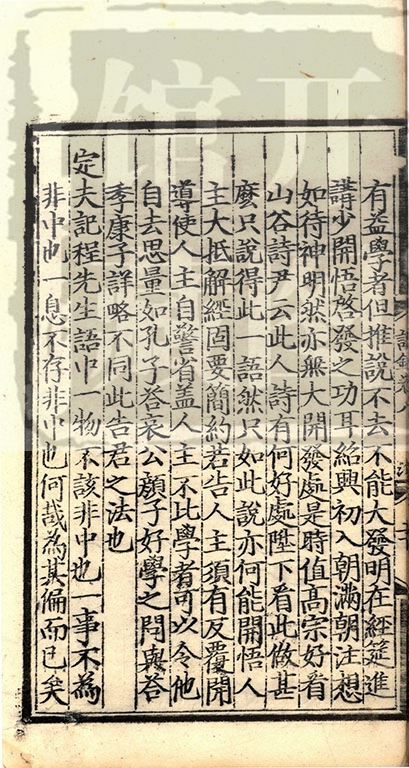 有益學者但推說不去不能大發明在經筵進
講少開悟啓發之功耳紹興初入朝滿朝注想
如待神明然亦無大開發處是時值高宗好看
山谷詩尹云此人詩有何好處陛下看此做甚
麽只說得此一語然只如此說亦何能開悟人
主大抵解經固要簡約若告人主須有反覆開
導使人主自警省蓋人主不比學者可以令他
自去思量如孔子答哀公顏子好學之問與答
季康子詳略不同此告君之法也
定夫記程先生語中一物不該非中也一事不為
非中也一息不存非中也何哉為其偏而已矣